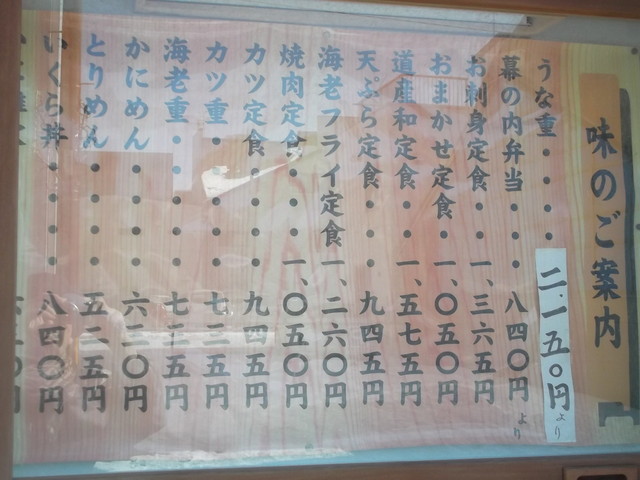 味のご案内
うな重・・・・二、一五〇円より
幕の内弁当・・・八四〇円より
お刺身定食・・一、三六五円
おまかせ定食・一、〇五〇円
道産和定食・・一、五七五円
天ぷら定食・・・九四五円
海老フライ定食一、二六〇円
焼肉定食・・・一、〇五〇円
カツ定食・・・・九四五円
カツ重・・・・・七三五円
海老重・・・・・七三五円
かにめん・・・・六三〇円
とりめん・・・・五二五円
いくら丼・・・・八四〇円